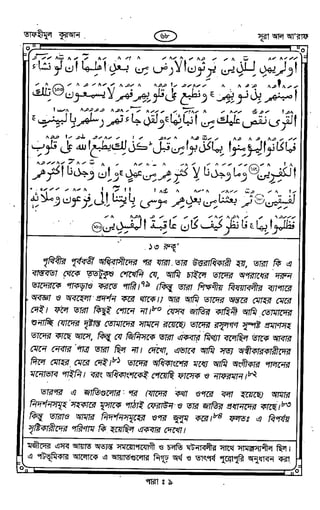 তাফহীমুল কুরআন
৬৮
সূরা আল আ'রাফ
أولم يهد للذين يرثون الأرض من بعد أهلها أن لو نشاء
أصبنهم بذنوبهم ونطبع على قلوبهم فهم لا يسمعون ﴿١٠٠﴾ تلك
القرى نقص عليك من أنبائها ولقد جاءتهم رسلهم بالبينت
فما كانوا ليؤمنوا بما كذبوا من قبل كذلك يطبع الله على قلوب
الكفرين ﴿١٠١﴾ وما وجدنا لأكثرهم من عهد وإن وجدنا أكثرهم
لفسقين ﴿١٠٢﴾ ثم بعثنا من بعدهم موسى بايتنا إلى فرعون وملائه
فظلموا بها فانظر كيف كان عاقبة المفسدين ﴿١٠٣﴾
১৩ রুকূ'
পৃথিবীর পূর্ববর্তী অধিবাসীদের পর যারা তার উত্তরাধিকারী হয়, তারা কি এ
বাস্তবতা থেকে ততটুকুও শেখেনি যে, আমি চাইলে তাদের অপরাধের দরুন
তাদেরকে পাকড়াও করতে পারি।৭৯ (কিন্তু তারা শিক্ষণীয় বিষয়াবলীর ব্যাপারে
অবজ্ঞা ও অবহেলা প্রদর্শন করে থাকে।) আর আমি তাদের অন্তরে মোহর মেরে
দেই। ফলে তারা কিছুই শোনে না।৮০ যেসব জাতির কাহিনী আমি তোমাদের
শুনাচ্ছি (যাদের দৃষ্টান্ত তোমাদের সামনে রয়েছে) তাদের রসূলগণ সুস্পষ্ট প্রমাণসহ
তাদের কাছে আসে, কিন্তু যে জিনিসকে তারা একবার মিথ্যা বলেছিল তাকে আবার
মেনে নেবার পাত্র তারা ছিল না। দেখো, এভাবে আমি সত্য অস্বীকারকারীদের
দিলে মোহর মেরে দেই।৮১ তাদের অধিকাংশের মধ্যে আমি অংগীকার পালনের
মনোভাব পাইনি। বরং অধিকাংশকেই পেয়েছি ফাসেক ও নাফরমান।৮২
তারপর এ জাতিগুলোর পর (যাদের কথা ওপরে বলা হয়েছে) আমার
নিদর্শনসমূহ সহকারে মূসাকে পাঠাই ফেরাউন ও তার জাতির প্রধানদের কাছে।৮৩
কিন্তু তারাও আমার নিদর্শনসমূহের ওপর জুলুম করে।৮৪ ফলতঃ এ বিপর্যয়
সৃষ্টিকারীদের পরিণাম কি হয়েছিল একবার দেখো।
নবীদের এসব আয়াত অত্যন্ত সময়োপযোগী ও চলতি ঘটনাবলীর সাথে সামঞ্জস্যশীল ছিল।
এ পটভূমিকার আলোকে এ আয়াতগুলোর নিগূঢ় অর্থ ও তাৎপর্য পুরোপুরি অনুধাবন করা
পারা : ৯